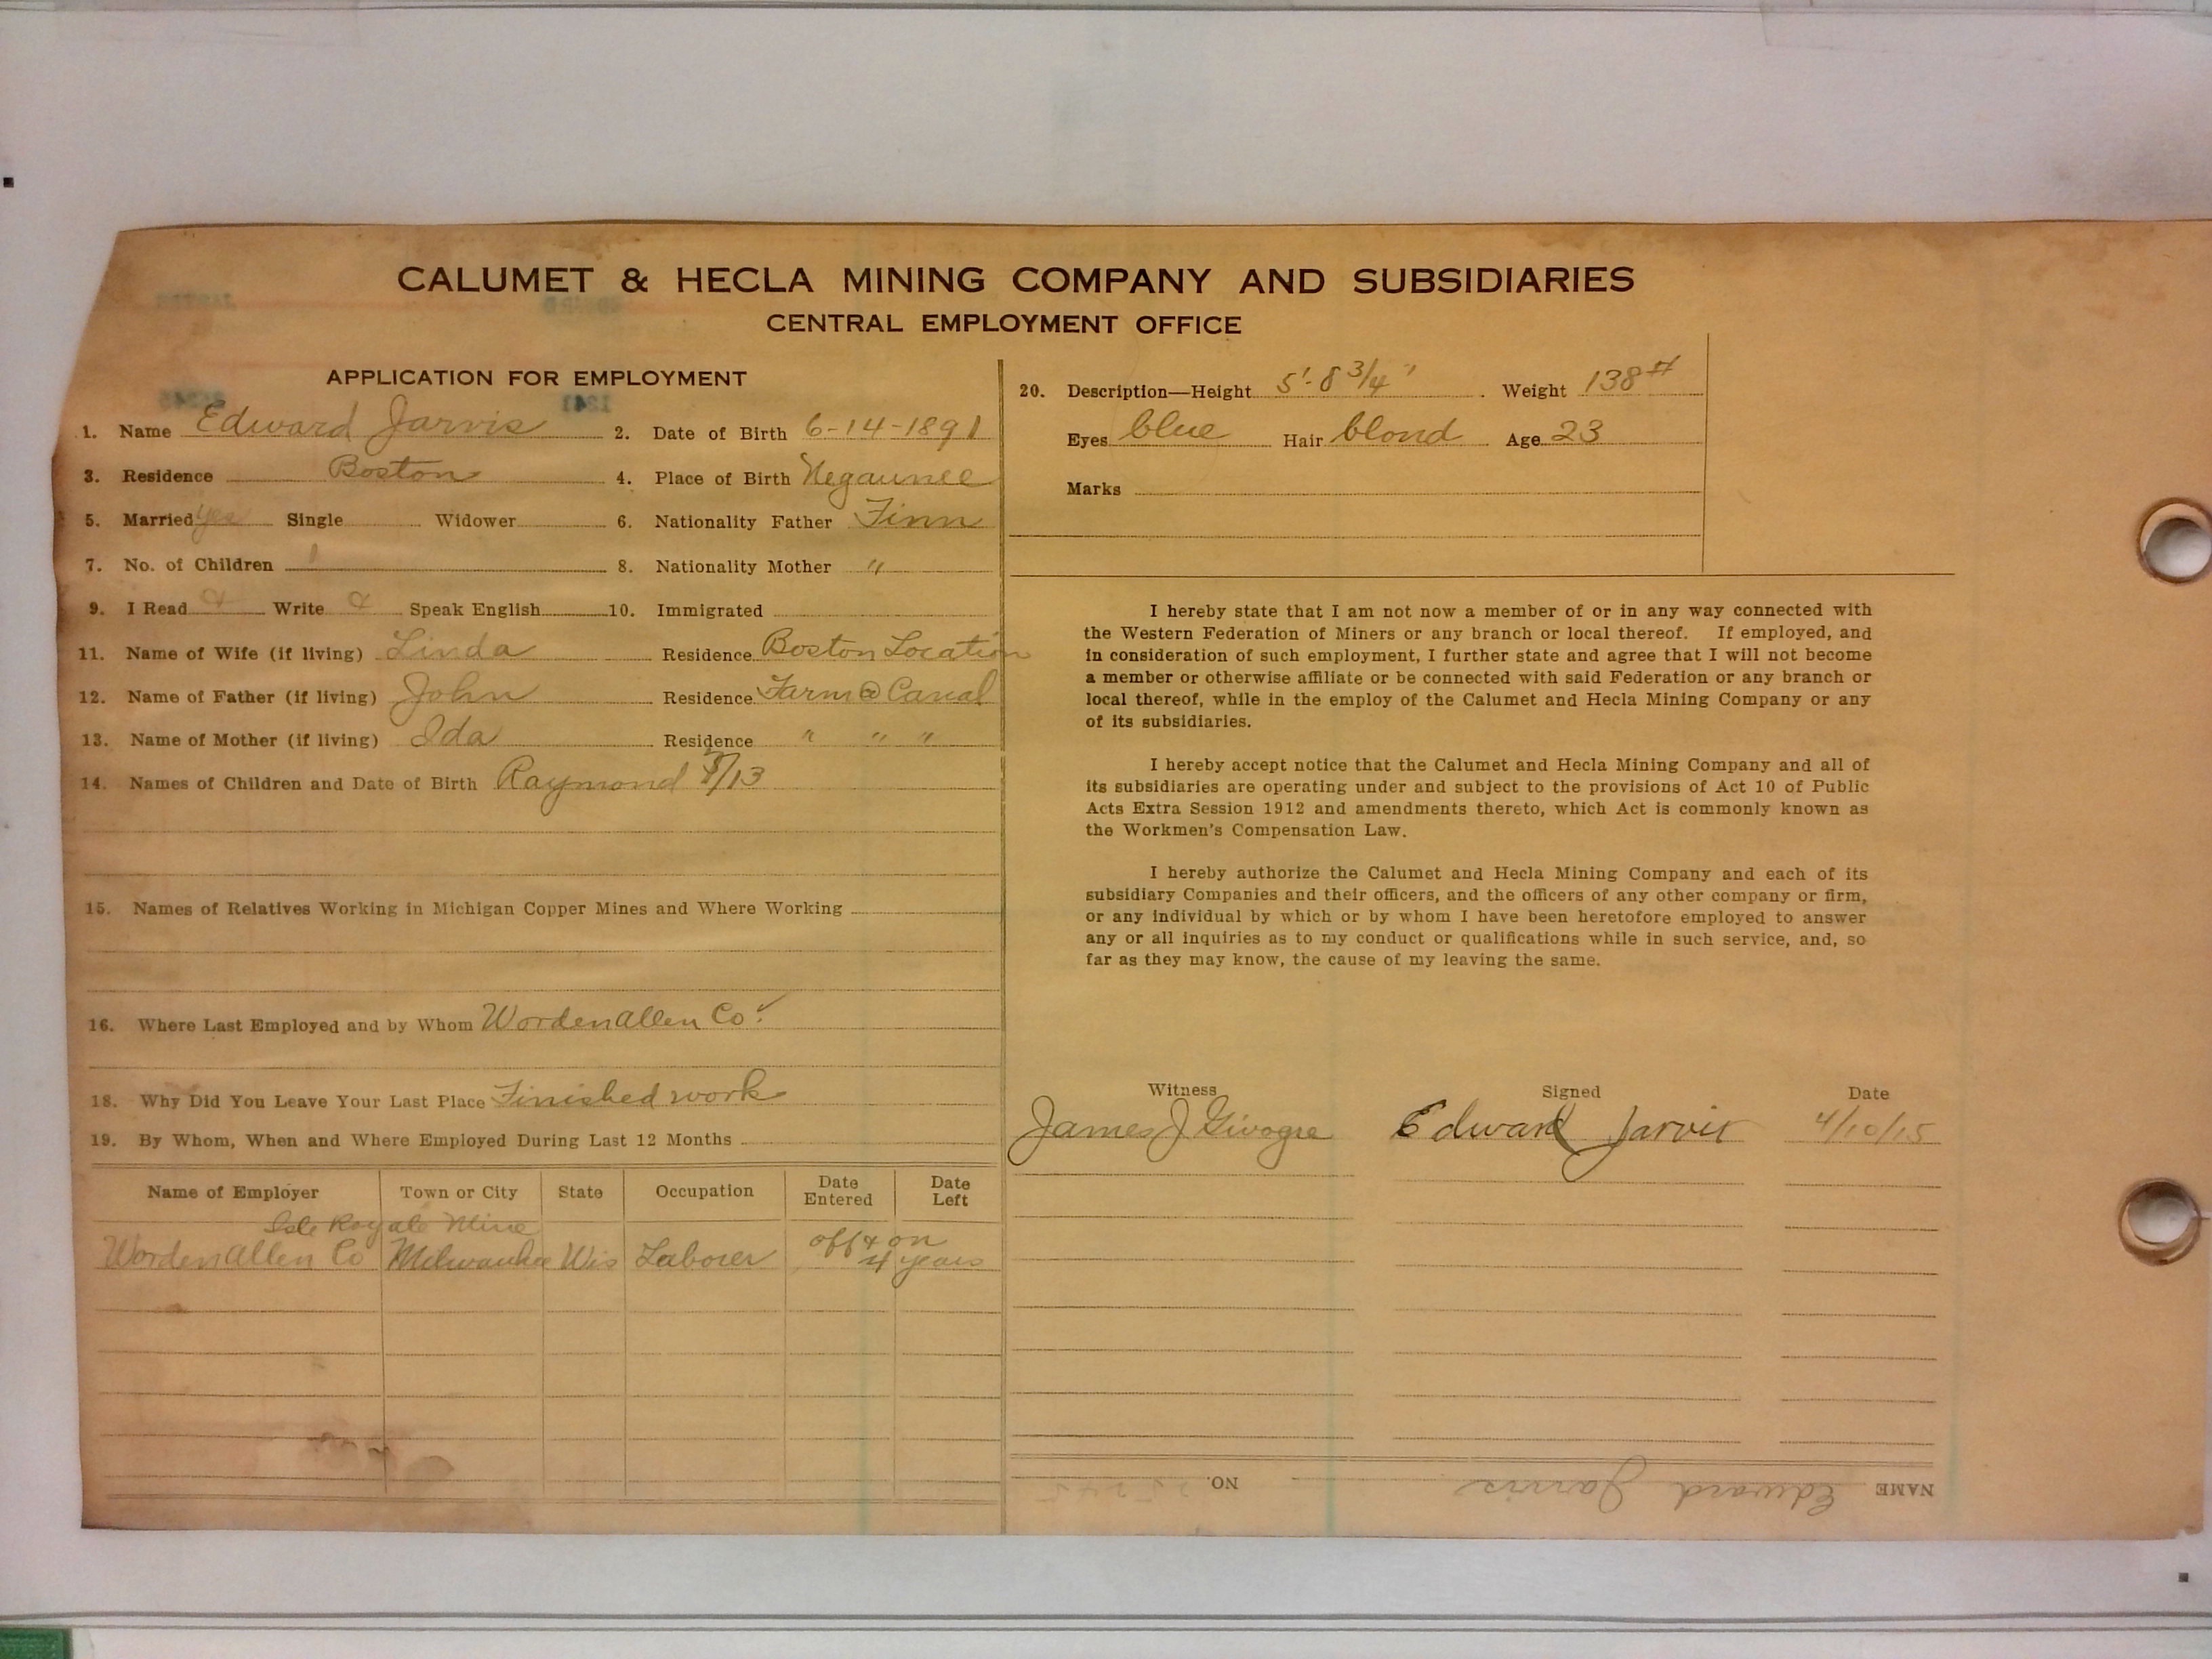 CALUMET & HECLA MINING COMPANY AND SUBSIDIARIES
CENTRAL EMPLOYMENT OFFICE
APPLICATION FOR EMPLOYMENT
1. Name Edward Jarvis 2. Date of Birth 6-14-1891
3. Residence Boston 4. Place of Birth Negaunee
5. Married yes Single Widower 6. Nationality Father Finn
7. No. of Children 1 8. Nationality Mother "
9. I Read Write Speak English 10. Immigrated
11. Name of Wife (if living) Linda Residence Boston Location
12. Name of Father (if living) John Residence Farm @ Canal
13. Name of Mother (if living) Ida Residence " " "
14. Names of Children and Date of Birth Raymond /13
15. Names of Relatives Working in Michigan Copper Mines and Where Working
16. Where Last Employed and by Whom Worden Allen Co.
18. Why Did You Leave Your Last Place Finished work
19. By Whom, When and Where Employed During Last 12 Months
Name of Employer Town or City State Occupation Date Entered Date Left
Isle Royale Mine
Worden Allen Co Milwaukee Wis Laborer off & on 4 years
20. Description—Height 5'-8 3/4" Weight 138#
Eyes blue Hair blond Age 23
Marks
I hereby state that I am not now a member of or in any way connected with
the Western Federation of Miners or any branch or local thereof. If employed, and
in consideration of such employment, I further state and agree that I will not become
a member or otherwise affiliate or be connected with said Federation or any branch or
local thereof, while in the employ of the Calumet and Hecla Mining Company or any
of its subsidiaries.
I hereby accept notice that the Calumet and Hecla Mining Company and all of
its subsidiaries are operating under and subject to the provisions of Act 10 of Public
Acts Extra Session 1912 and amendments thereto, which Act is commonly known as
the Workmen's Compensation Law.
I hereby authorize the Calumet and Hecla Mining Company and each of its
subsidiary Companies and their officers, and the officers of any other company or firm,
or any individual by which or by whom I have been heretofore employed to answer
any or all inquiries as to my conduct or qualifications while in such service, and, so
far as they may know, the cause of my leaving the same.
Witness Signed Date
James J Edward Jarvis 4/10/15
NAME Edward Jarvis NO.